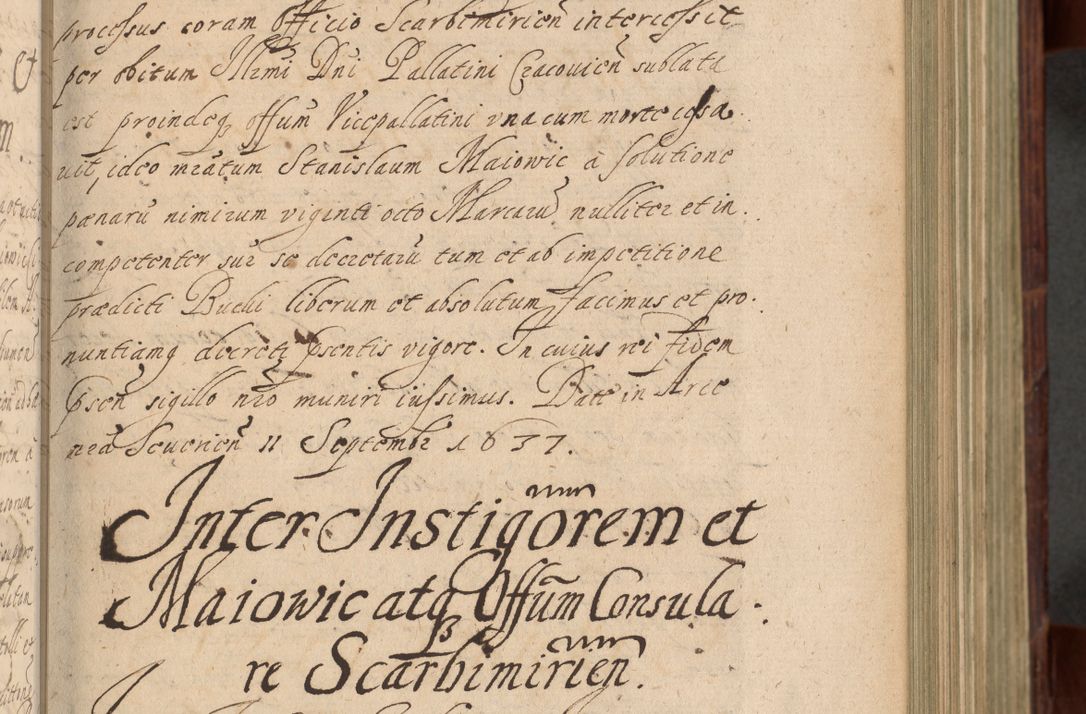 processus coram Officio Scarbimirien̄ intercessit
per obitum Illrmi Dn̄i Pallatini Cracovien̄ sublata
est proindeq offūm Vicepallatini vna cum morte cessa
uit, ideo mratum Stanislaum Maiowic à solutione
pænarū nimirum viginti octo Marcarū nulliter et in.
competenter sup se decretarū tum et ab impetitione
prædicti Buchi liberum et absolutum facimus et pro.
nuntiamq decreti pſentis vigore. In cuius rei fidem
pſen̄ sigillo nr̄o muniri iussimus. Datt in Arce
nr̄a Scucrien̄ 11 Septembr 1637.
Inter Instigōrem et
Maiowic atq Offūm Consula.
re Scarbimirien̄.